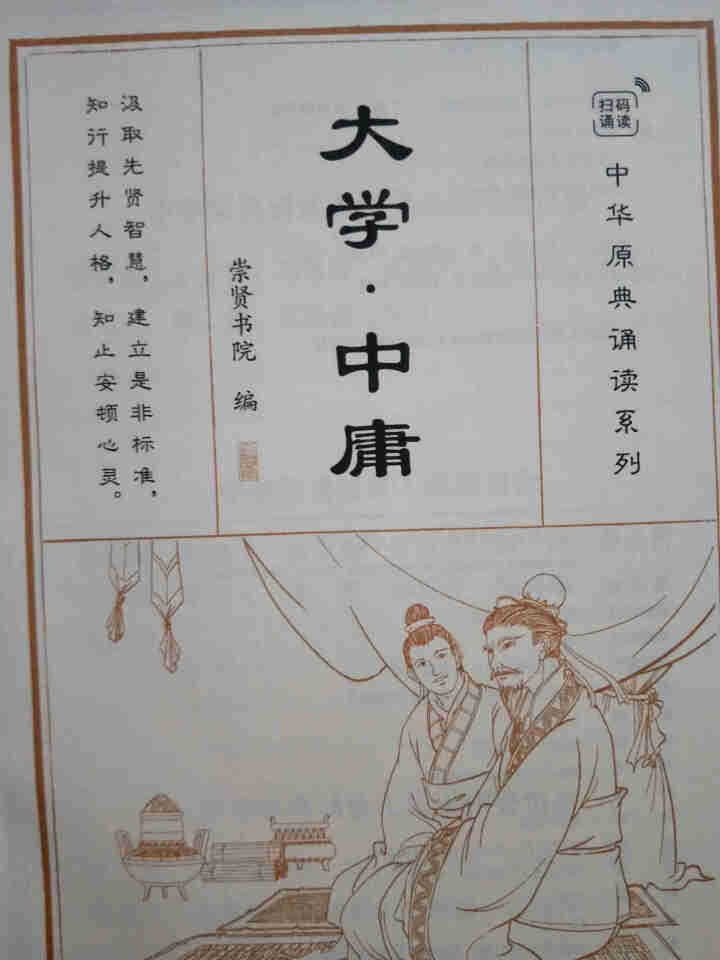 扫码
诵读
中华原典诵读系列
大学·中庸
崇贤书院 编
汲取先贤智慧，建立是非标准，
知行提升人格，知止安顿心灵。